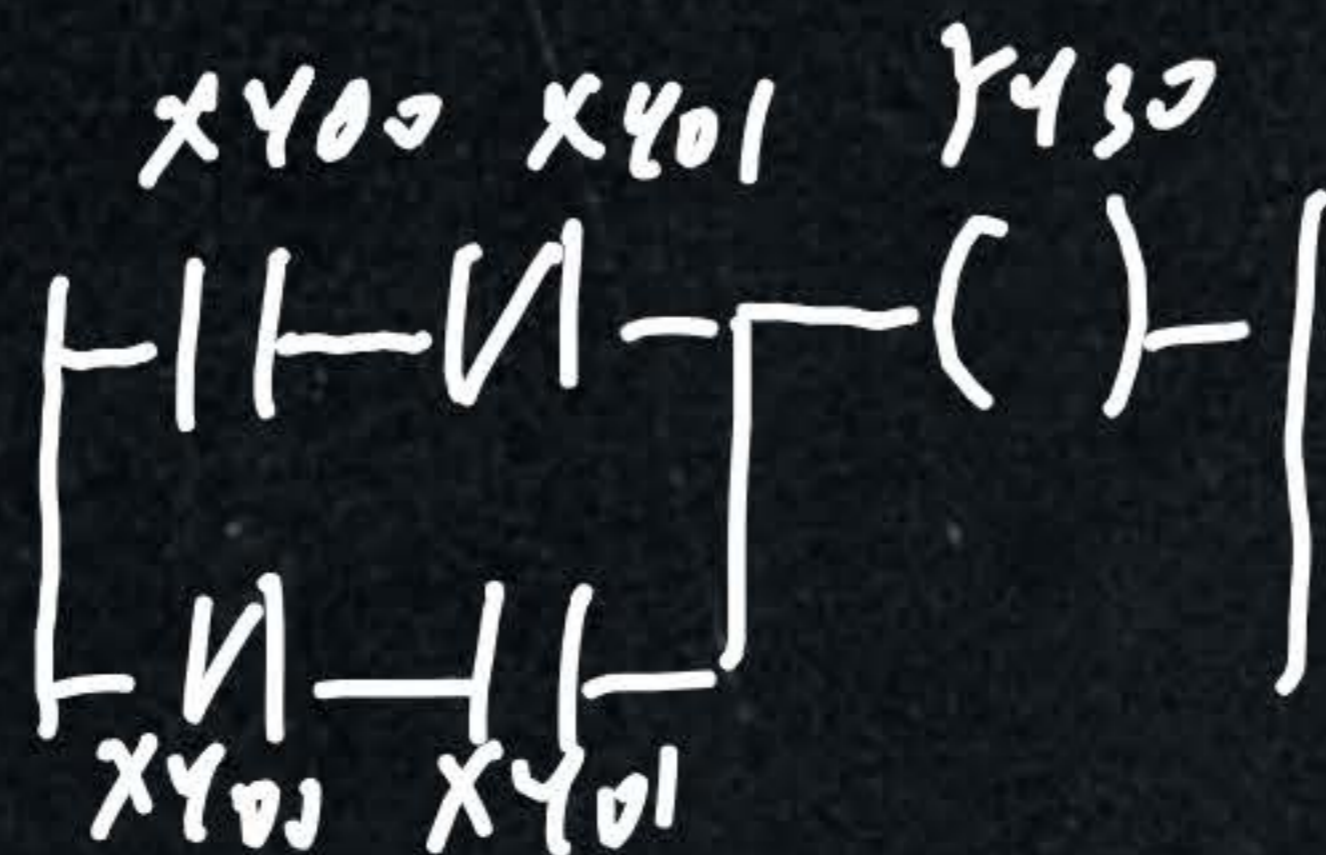 X400 X401 Y430
X400 X401